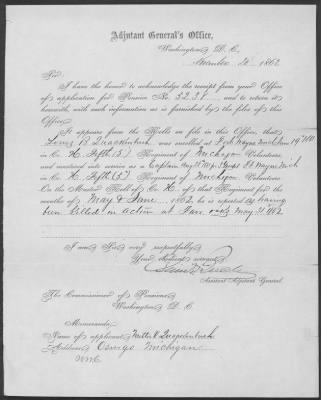 Adjutant General's Office,
Washington, D. C.
November 1862
Sir:
I have the honor to acknowledge the receipt from your Office
of application for Pension No. 3238 and to return it
herewith, with such information as is furnished by the files of this
Office.
It appears from the Rolls on file in this Office, that
Lewis B Quackenbush was enrolled at Fort Wayne Mich June 19
in Co. H. Fifth (5") Regiment of Michigan Volunteers,
and mustered into service as at Ft Wayne Mich
in Co. H. Fifth (5") Regiment of Michigan Volunteers.
On the Muster Roll of Co. H. of that Regiment for the
months of May & June, 1862, he is reported as having
been killed in action at Fair Oaks May 31" 1862
I am Sir, very respectfully,
Your obedient servant,
Assistant Adjutant General.
The Commissioner of Pensions
Washington, D. C.
Memoranda.
Name of applicant, Quackenbush
Address, Michigan